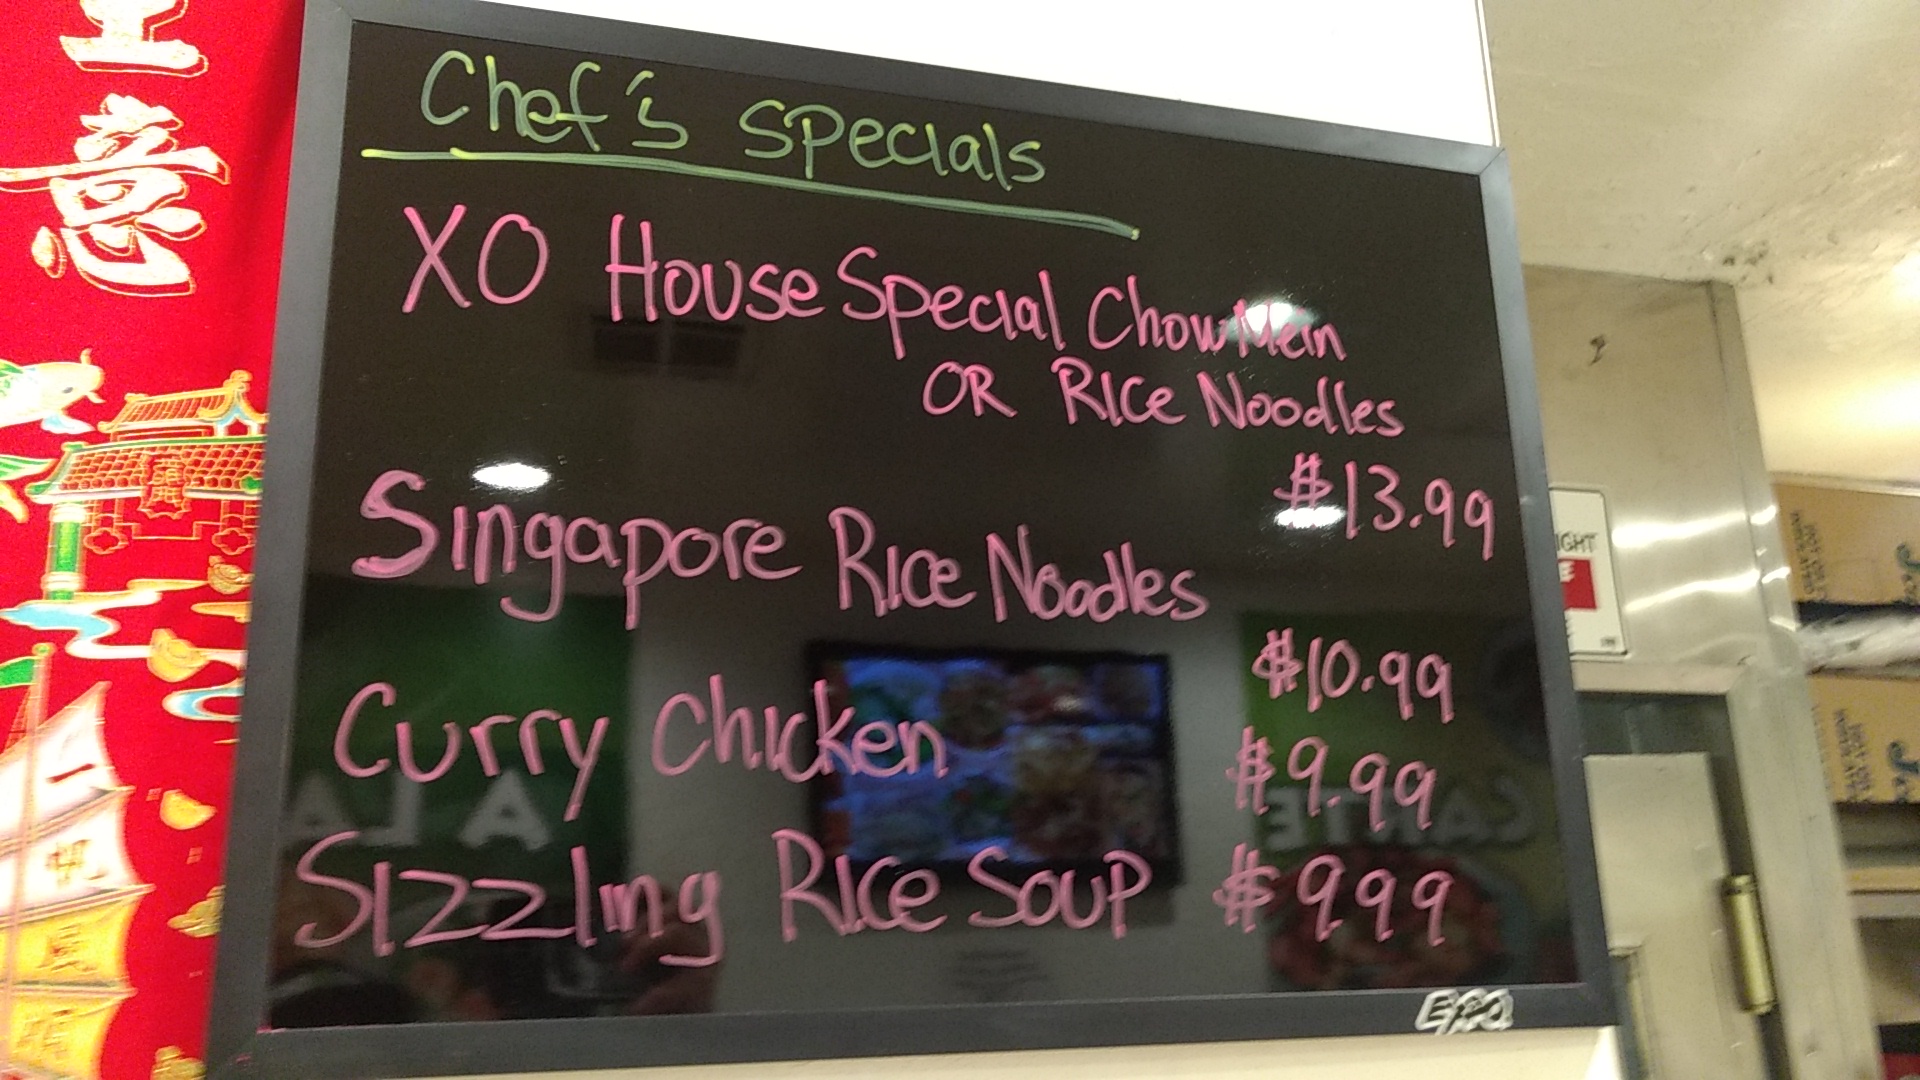 Chef's Specials
XO House Special Chow Mein
OR Rice Noodles
$13.99
Singapore Rice Noodles
$10.99
Curry Chicken $9.99
Sizzling Rice Soup $999
意
A LA
CARTE
IGHT